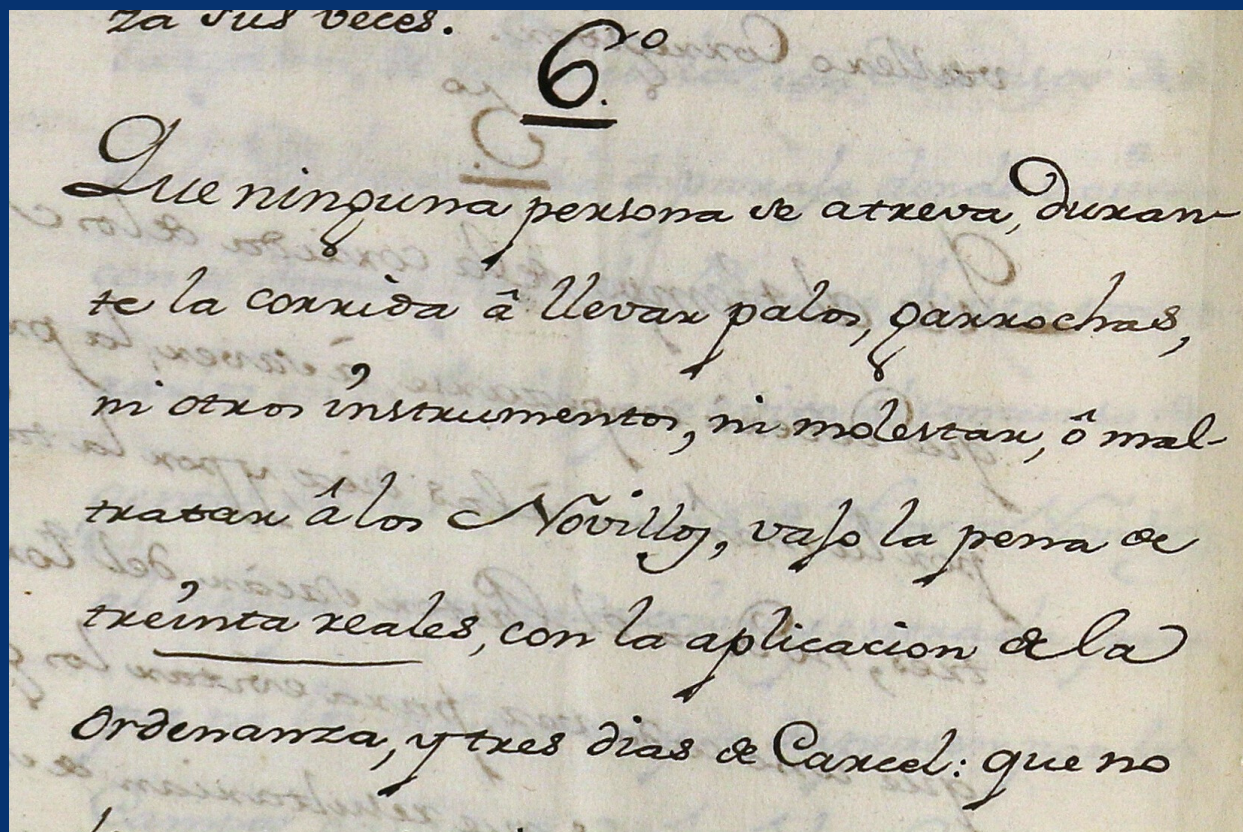 za sus veces.
6.ro
Que ninguna persona se atreva, duran-
te la corrida â llevar palos, garrochas,
ni otros instrumentos, ni molestar, ô mal-
tratar â los Novillos, vajo la pena de
treinta reales, con la aplicacion de la
Ordenanza, y tres dias de Carcel: que no